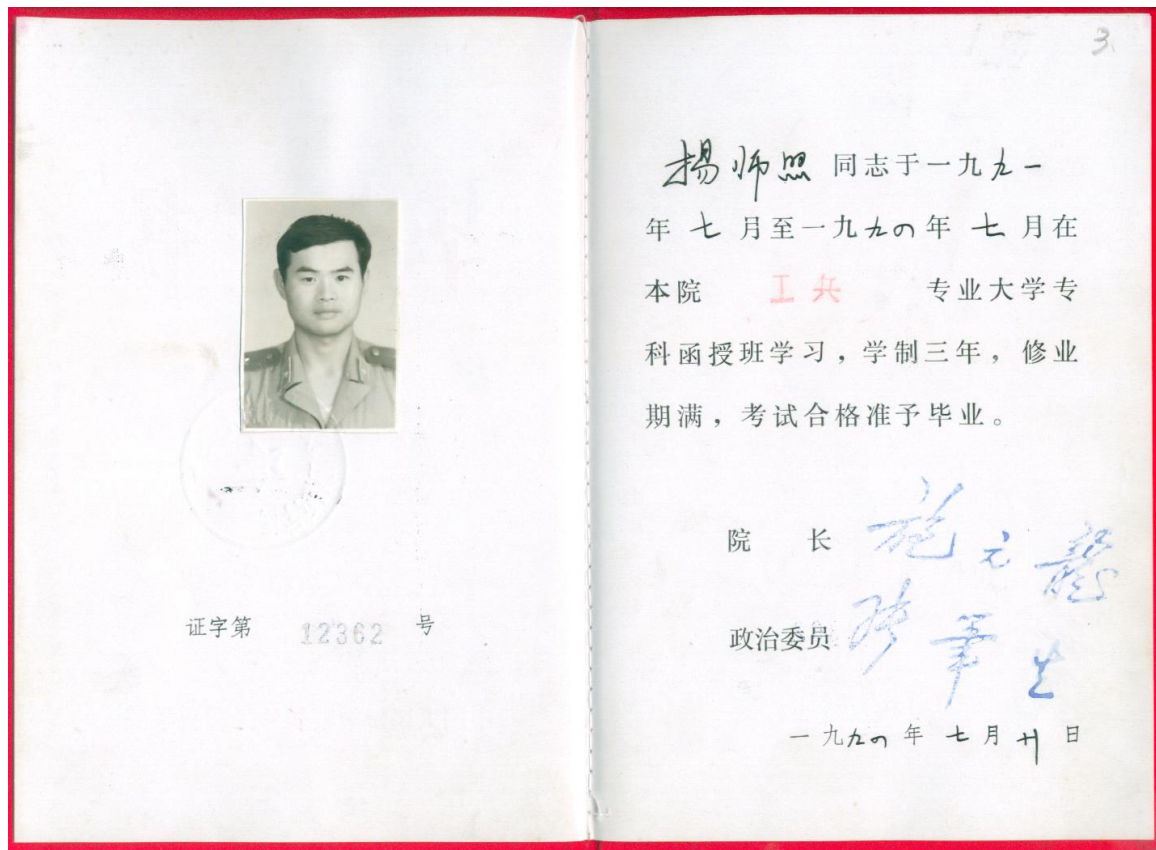 证字第 12362 号
3
楊师照 同志于一九九一
年 七 月至一九九四年 七 月在
本院 工兵 专业大学专
科函授班学习，学制三年，修业
期满，考试合格准予毕业。
院 长 施元龙
政治委员
一九九四年 七月 廿 日